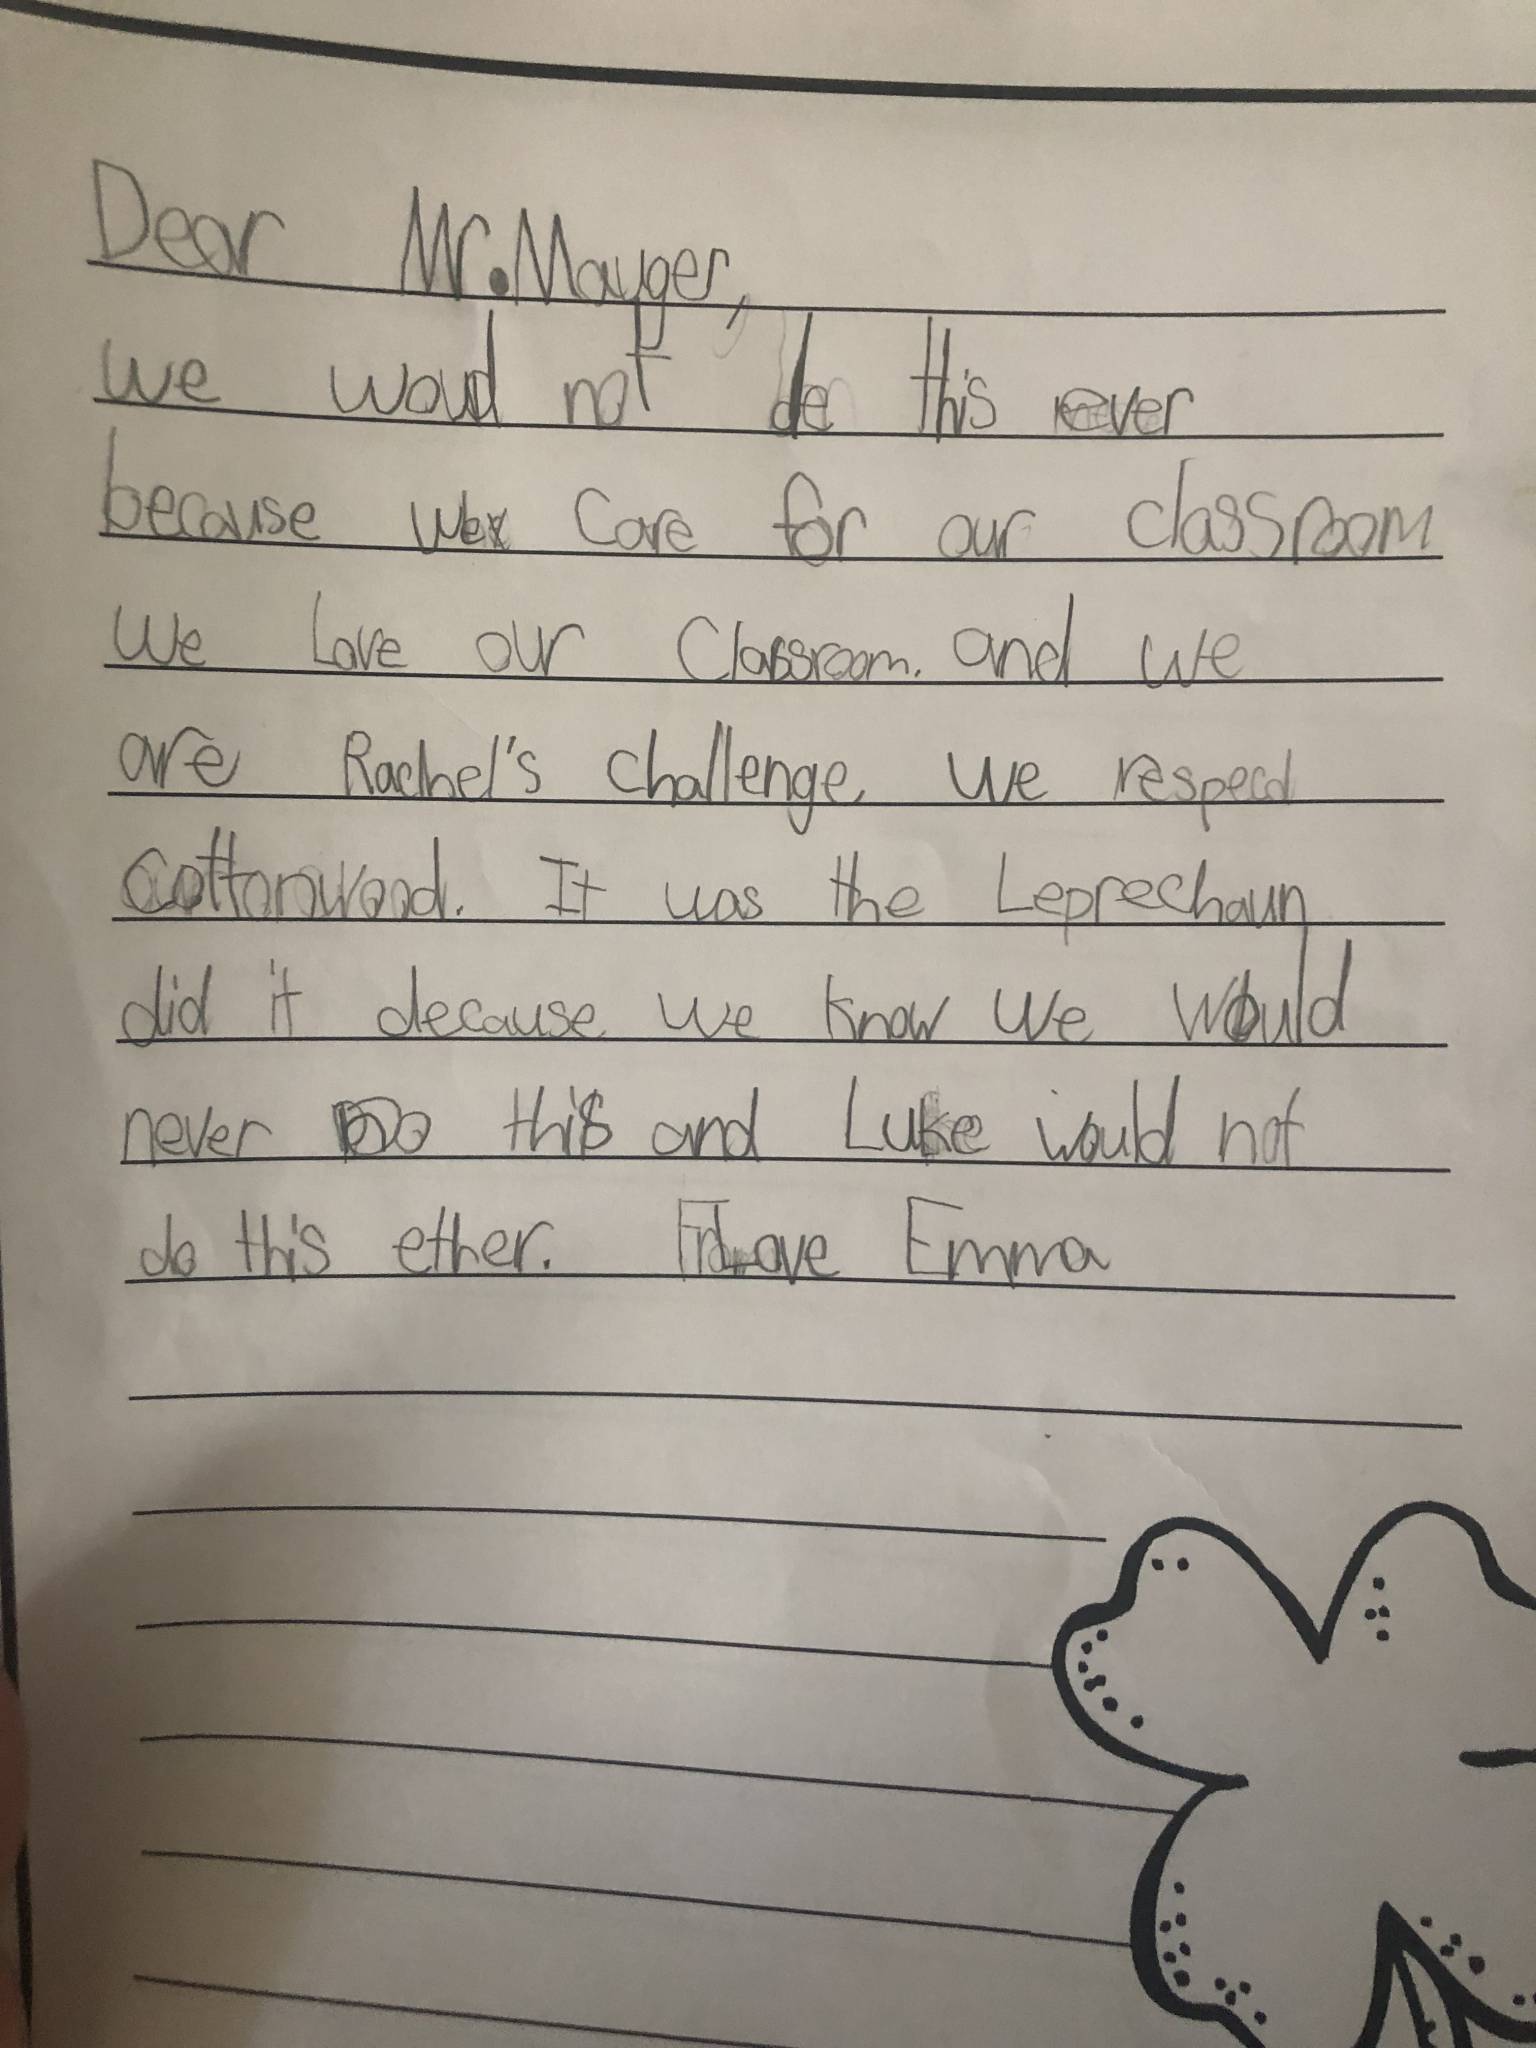 Dear Mr. Mayger,
we woud not do this ever
because we care for our classroom
we Love our Classroom. and we
are Rachel's challenge, we respecd
cottonwood. It was the Leprechaun
did it decause we know we would
never Do this and Luke would not
do this ether. Love Emma